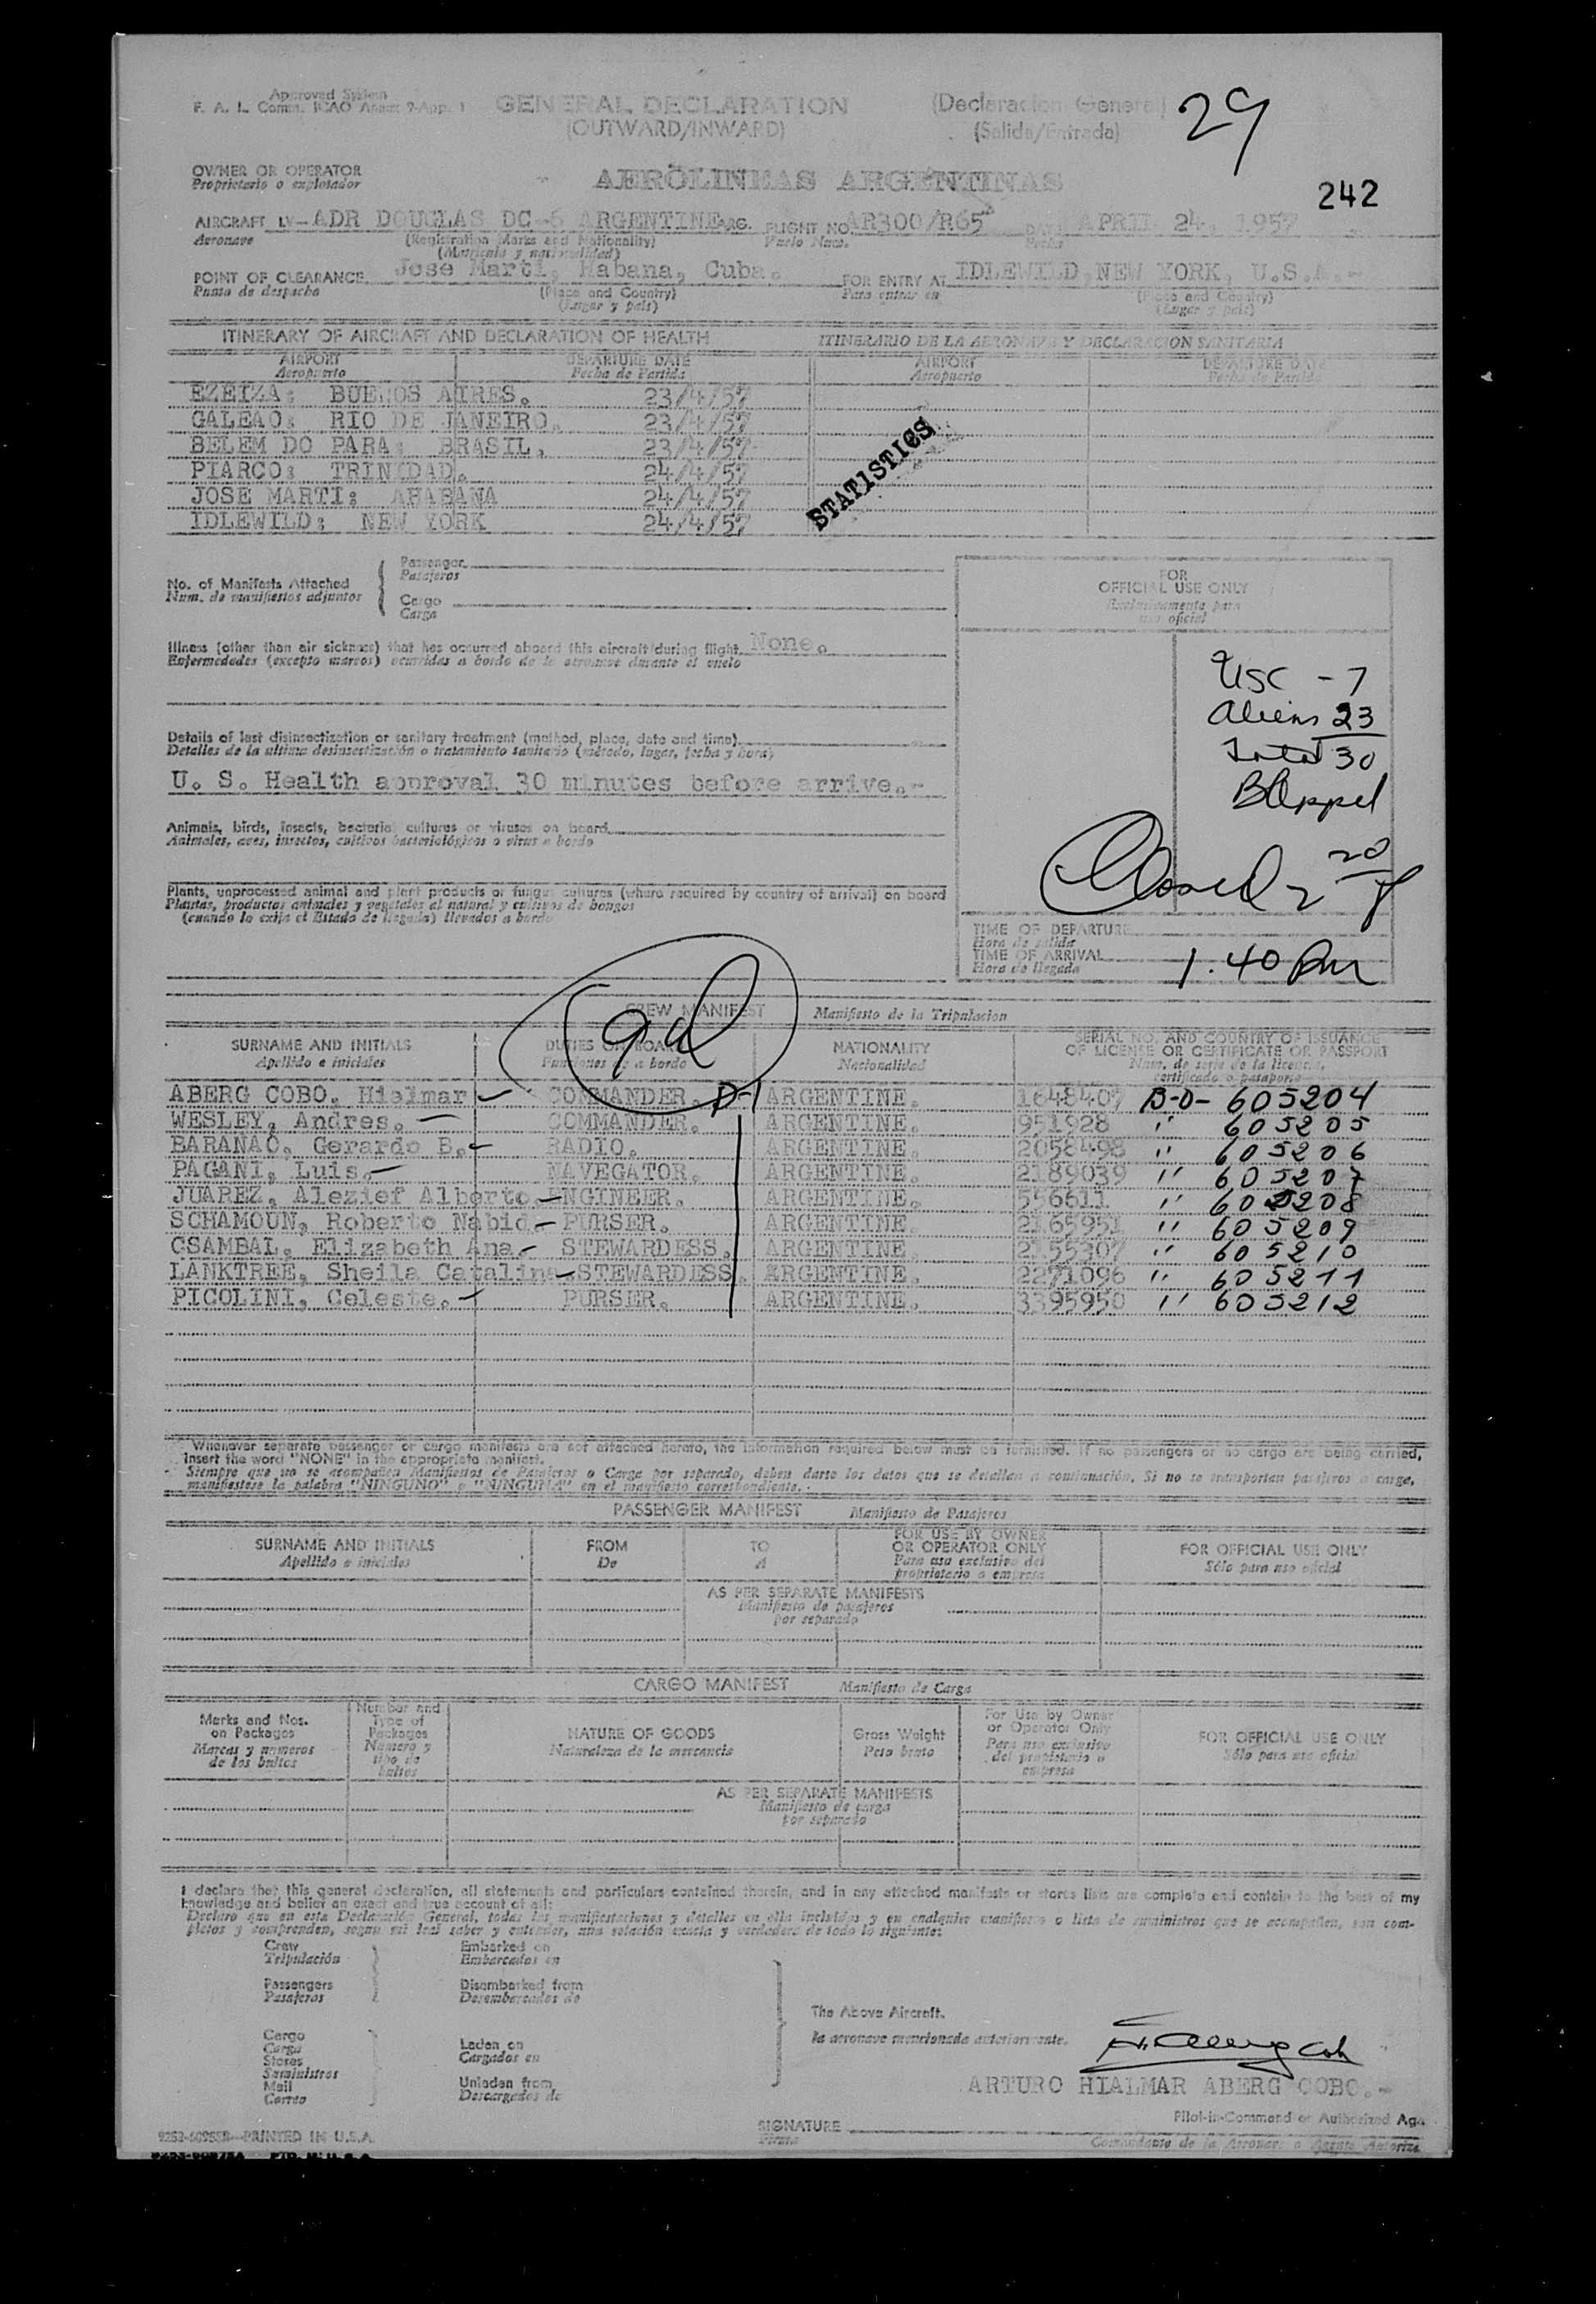 Approved System
F. A. L. Comm. ICAO Annex 9-App. 1
GENERAL DECLARATION
(OUTWARD/INWARD)
(Declaracion General)
(Salida/Entrada)
29
242
OWNER OR OPERATOR
Proprietario o explotador
AEROLINEAS ARGENTINAS
AIRCRAFT LV-ADR DOUGLAS DC-6 ARGENTINE ARG. FLIGHT NO. AR300/R65 DATE APRIL 24, 1957
Aeronave (Registration Marks and Nationality) Vuelo Num. Fecha
(Matricula y nacionalidad)
POINT OF CLEARANCE Jose Marti, Habana, Cuba. FOR ENTRY AT IDLEWILD, NEW YORK, U.S.A.-
Punto de despacho (Place and Country) Para entrar en (Place and Country)
(Lugar y país) (Lugar y país)
ITINERARY OF AIRCRAFT AND DECLARATION OF HEALTH ITINERARIO DE LA AERONAVE Y DECLARACION SANITARIA
AIRPORT DEPARTURE DATE AIRPORT DEPARTURE DATE
Aeropuerto Fecha de Partida Aeropuerto Fecha de Partida
EZEIZA: BUENOS AIRES. 23/4/57
GALEAO: RIO DE JANEIRO. 23/4/57
BELEM DO PARA: BRASIL. 23/4/57
PIARCO: TRINIDAD. 24/4/57
JOSE MARTI: AHABANA 24/4/57
IDLEWILD: NEW YORK 24/4/57
STATISTICS
No. of Manifests Attached
Num. de manifiestos adjuntos
Passenger
Pasajeros
Cargo
Carga
FOR
OFFICIAL USE ONLY
Exclusivamente para
uso oficial
Illness (other than air sickness) that has occurred aboard this aircraft during flight None.
Enfermedades (excepto mareos) ocurridas a bordo de la aeronave durante el vuelo
USC - 7
Aliens 23
Total 30
Details of last disinsectization or sanitary treatment (method, place, date and time)
Detalles de la ultima desinsectización o tratamiento sanitario (método, lugar, fecha y hora)
U. S. Health approval 30 minutes before arrive.-
Animals, birds, insects, bacterial cultures or viruses on board
Animales, aves, insectos, cultivos bacteriológicos o virus a bordo
Closed
Plants, unprocessed animal and plant products or fungus cultures (where required by country of arrival) on board
Plantas, productos animales y vegetales al natural y cultivos de hongos
(cuando lo exija el Estado de llegada) llevados a bordo
TIME OF DEPARTURE
Hora de salida
TIME OF ARRIVAL 1.40 Pm
Hora de llegada
CREW MANIFEST Manifiesto de la Tripulacion
SURNAME AND INITIALS DUTIES ON BOARD NATIONALITY SERIAL NO. AND COUNTRY OF ISSUANCE
OF LICENSE OR CERTIFICATE OR PASSPORT
Apellido e iniciales Funciones de a bordo Nacionalidad Num. de serie de la licencia,
certificado o pasaporte
ABERG COBO, Hialmar COMMANDER. D-1 ARGENTINE. 1648407 B-O- 605204
WESLEY, Andres. COMMANDER. ARGENTINE. 951928 " 605205
BARANAO, Gerardo B. RADIO. ARGENTINE. 2058498 " 605206
PAGANI, Luis. NAVEGATOR. ARGENTINE. 2189039 " 605207
JUAREZ, Alezief Alberto NGINEER. ARGENTINE. 556611 " 605208
SCHAMOUN, Roberto Nabid PURSER. ARGENTINE. 2165951 " 605209
CSAMBAL, Elizabeth Ana STEWARDESS. ARGENTINE. 2155307 " 605210
LANKTREE, Sheila Catalina STEWARDESS. ARGENTINE. 2271096 " 605211
PICOLINI, Celeste. PURSER. ARGENTINE. 3395950 " 605212
Whenever separate passenger or cargo manifests are not attached hereto, the information required below must be furnished. If no passengers or no cargo are being carried,
insert the word "NONE" in the appropriate manifest.
Siempre que no se acompañen Manifiestos de Pasajeros o Carga por separado, deben darse los datos que se detallan a continuación. Si no se transportan pasajeros o carga,
manifiestese la palabra "NINGUNO" o "NINGUNA" en el manifiesto correspondiente.
PASSENGER MANIFEST Manifiesto de Pasajeros
SURNAME AND INITIALS FROM TO FOR USE BY OWNER
OR OPERATOR ONLY FOR OFFICIAL USE ONLY
Apellido e iniciales De A Para uso exclusivo del
proprietario o empresa Sólo para uso oficial
AS PER SEPARATE MANIFESTS
Manifiesto de pasajeros
por separado
CARGO MANIFEST Manifiesto de Carga
Marks and Nos.
on Packages
Marcas y numeros
de los bultos
Number and
Type of
Packages
Numero y
tipo de
bultos
NATURE OF GOODS
Naturaleza de la mercancia
Gross Weight
Peso bruto
For Use by Owner
or Operator Only
Para uso exclusivo
del propietario o
empresa
FOR OFFICIAL USE ONLY
Sólo para uso oficial
AS PER SEPARATE MANIFESTS
Manifiesto de carga
por separado
I declare that this general declaration, all statements and particulars contained therein, and in any attached manifests or stores lists are complete and contain to the best of my
knowledge and belief an exact and true account of all:
Declaro que en esta Declaración General, todas las manifestaciones y detalles en ella incluidos y en cualquier manifiesto o lista de suministros que se acompañen, son com-
pletos y comprenden, segun mi leal saber y entender, una relación exacta y verdadera de todo lo siguiente:
Crew Embarked on
Tripulación Embarcados en
Passengers Disembarked from
Pasajeros Desembarcados de
The Above Aircraft.
la aeronave mencionada anteriormente.
Cargo
Carga
Stores
Suministros
Mail
Correo
Laden on
Cargados en
Unladen from
Descargados de
ARTURO HIALMAR ABERG COBO.-
Pilot-in-Command or Authorized Ag
SIGNATURE
Firma
Comandante de la Aeronave o Agente Autoriza
9252-60955R—PRINTED IN U.S.A.